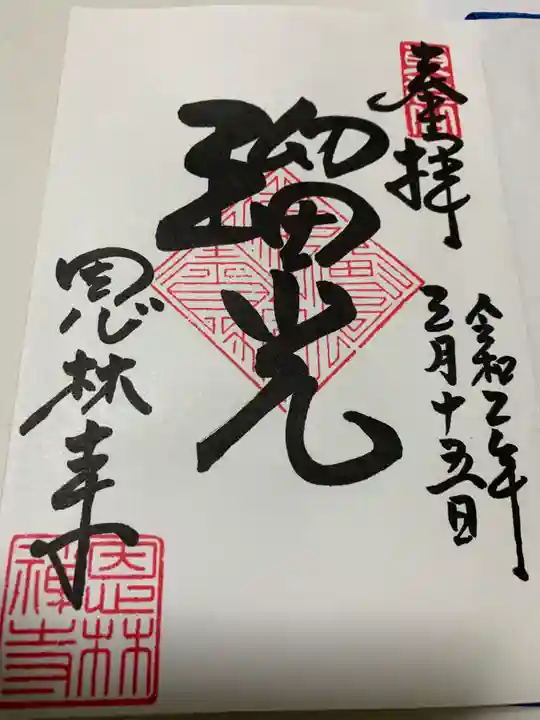 奉拝
令和乙年
三月十五日
瑠光
恩林寺
恩林
禅寺